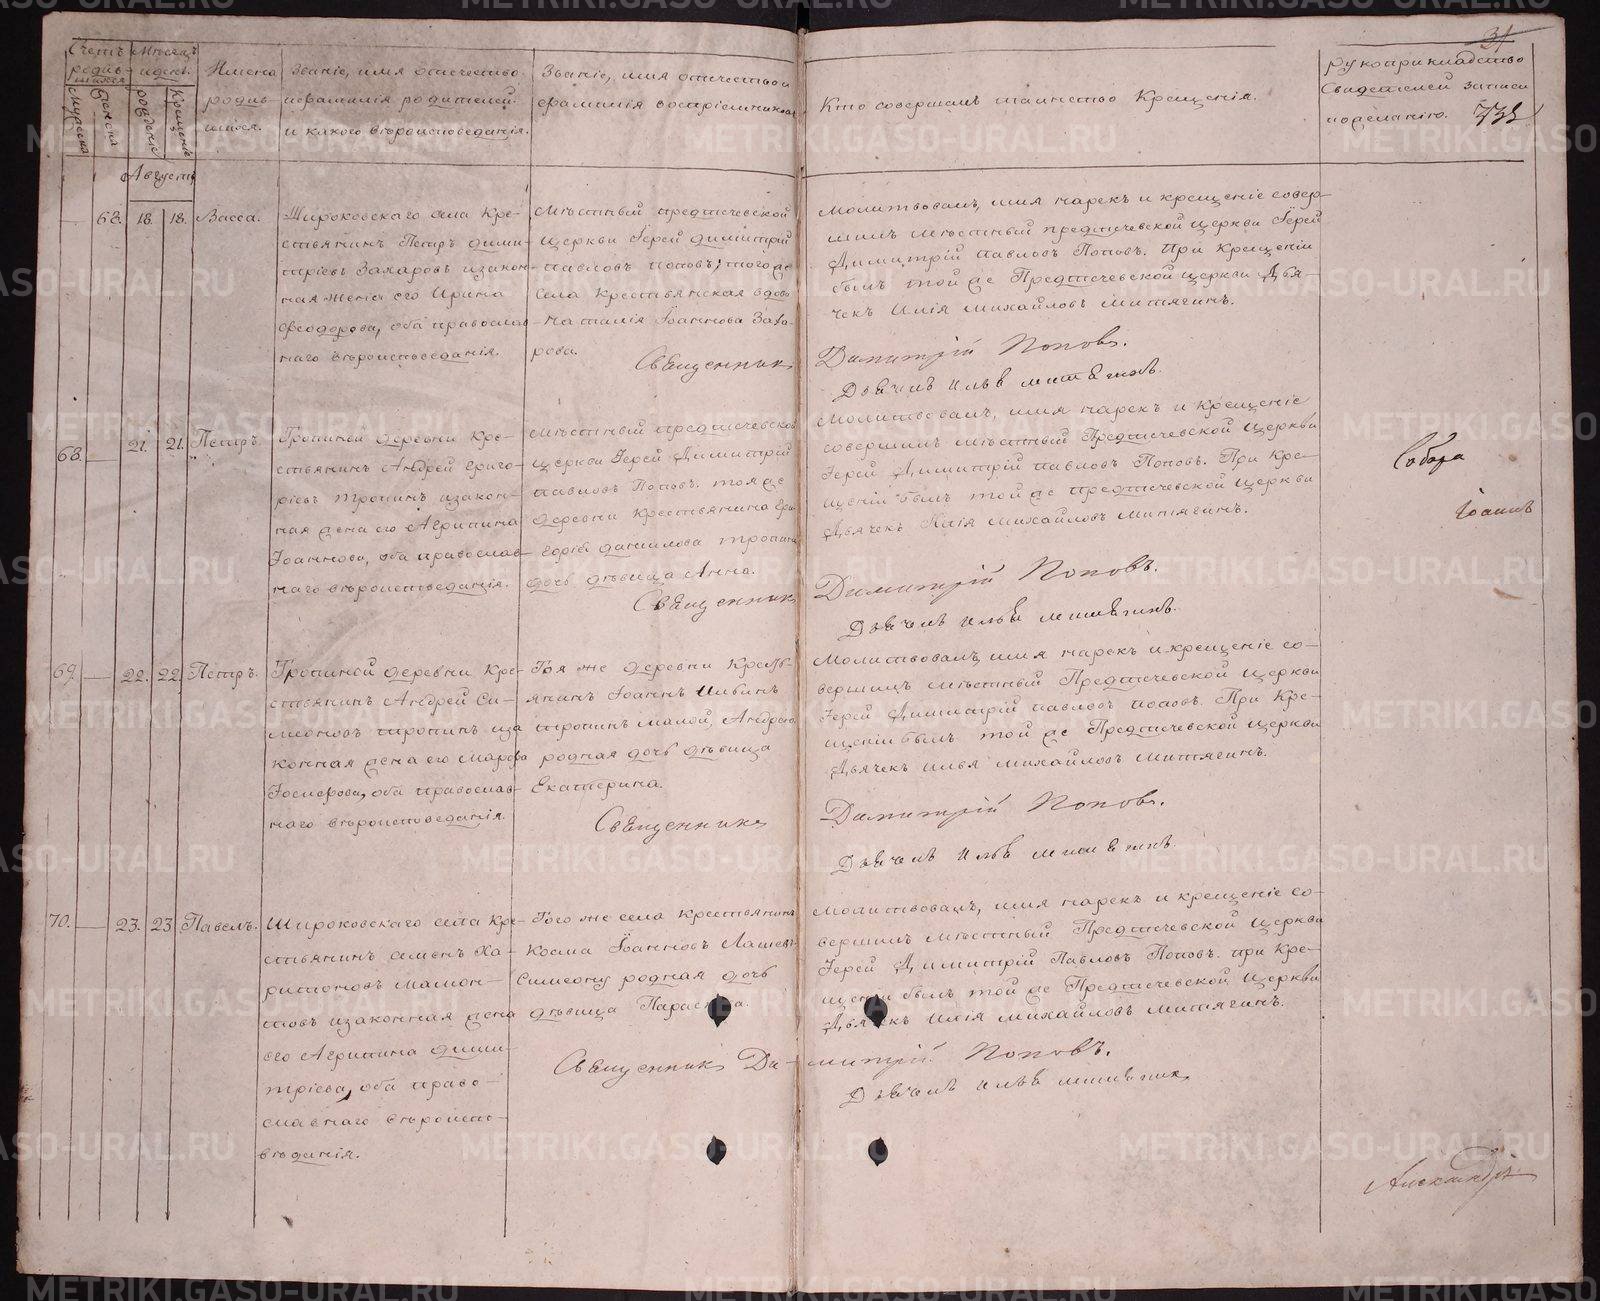 31
Счетъ родившихся
Мужеска
Женска
Мѣсяцъ и день.
рожденія
Крещенія
Имена родив-
шихся.
Званіе, имя отечество
и фамилія родителей
и какого вѣроисповеданія.
Званіе, имя отечество и
фамилія воспріемниковъ
Кто совершалъ таинство Крещенія.
рукоприкладство
свидетелей записи
по желанію.
738
Августъ
68. 18. 18. Васса.
Широковскаго села Кре-
стьянинъ Петръ Дими-
тріевъ Захаровъ и закон-
ная жена его Ирина
Феодорова, оба православ-
наго вѣроисповеданія.
Мѣстный предтечевской
церкви Іерей Димитрій
Павловъ Поповъ; того же
села Крестьянская вдова
Наталія Іоаннова Заха-
рова.
Священникъ
Молитвовалъ, имя нарекъ и крещеніе совер-
шилъ мѣстный предтечевской церкви Іерей
Димитрій Павловъ Поповъ. При Крещеніи
былъ той же Предтечевской церкви Дья-
чекъ Илія Михайловъ Митягинъ.
Димитрій Поповъ.
Дьячекъ Илья Митягинъ.
68. 21. 21. Петръ.
Тропиной деревни Кре-
стьянинъ Андрей Григо-
ріевъ Тропинъ и закон-
ная жена его Агрипина
Іоаннова, оба православ-
наго вѣроисповеданія.
Мѣстный предтечевской
церкви Іерей Димитрій
Павловъ Поповъ. той же
деревни Крестьянина Гри
горія Данилова Тропина
дочь дѣвица Анна.
Священникъ
Молитвовалъ, имя нарекъ и крещеніе
совершилъ мѣстный Предтечевской церкви
Іерей Димитрій Павловъ Поповъ. При Кре-
щеніи былъ той же предтечевской церкви
Дьячекъ Илія Михайловъ Митягинъ.
Димитрій Поповъ.
Дьячекъ Илья Митягинъ.
Собора
Іоаннъ
69. 22. 22. Петръ.
Тропиной деревни Кре-
стьянинъ Андрей Си-
меоновъ Тропинъ и за
конная жена его Мавра
Іосифова, оба православ-
наго вѣроисповеданія.
Тоя же деревни Кресть-
янинъ Іоаннъ Ильинъ
Тропинъ малой, Андрею
родная дочь дѣвица
Екатерина.
Священникъ
Молитвовалъ, имя нарекъ и крещеніе со-
вершилъ мѣстный Предтечевской церкви
Іерей Димитрій Павловъ Поповъ. При Кре-
щеніи былъ той же Предтечевской церкви
Дьячекъ Илья Михайловъ Митягинъ.
Димитрій Поповъ.
Дьячекъ Илья Митягинъ.
70. 23. 23 Павелъ.
Широковскаго села Кре-
стьянинъ Семенъ Ха-
ритоновъ Мамон-
товъ и законная жена
его Агрипина Дими-
тріева, оба право-
славнаго вѣроиспо-
вѣданія.
Того же села Крестьянинъ
Косма Іоанновъ
Симеону родная дочь
дѣвица Параскева.
Священникъ Ди-
митрій Поповъ.
Молитвовалъ, имя нарекъ и крещеніе со-
вершилъ мѣстный Предтечевской церкви
Іерей Димитрій Павловъ Поповъ. При Кре-
щеніи былъ той же Предтечевской церкви
Дьячекъ Илія Михайловъ Митягинъ.
Дьячекъ Илья Митягинъ
Александръ
METRIKI.GASO-URAL.RU